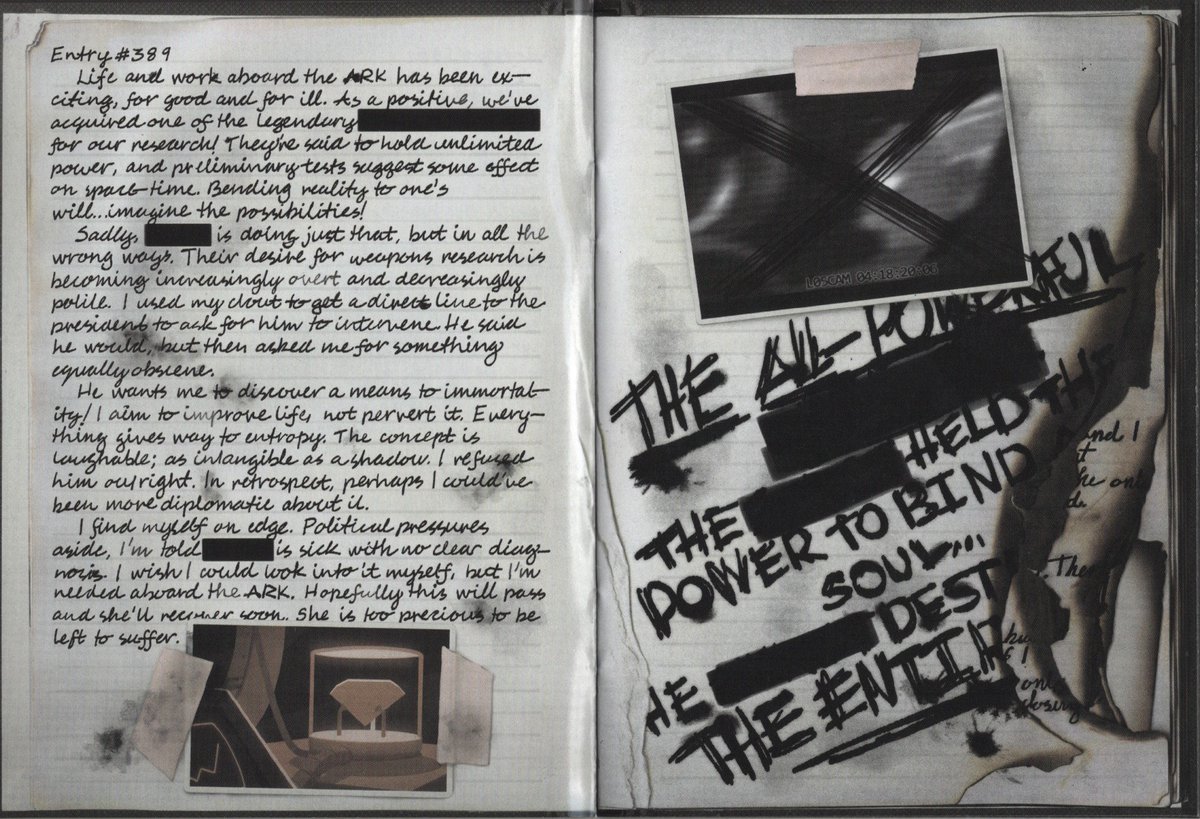 Entry #389
Life and work aboard the ARK has been ex-
citing, for good and for ill. As a positive, we've
acquired one of the legendary
for our research! They're said to hold unlimited
power, and preliminary tests suggest some effect
on space-time. Bending reality to one's
will...imagine the possibilities!
Sadly, is doing just that, but in all the
wrong ways. Their desire for weapons research is
becoming increasingly overt and decreasingly
polite. I used my clout to get a direct line to the
president to ask for him to intervene. He said
he would, but then asked me for something
equally obscene.
He wants me to discover a means to immortal-
ity! I aim to improve life, not pervert it. Every-
thing gives way to entropy. The concept is
laughable; as intangible as a shadow. I refused
him outright. In retrospect, perhaps I could've
been more diplomatic about it.
I find myself on edge. Political pressures
aside, I'm told is sick with no clear diag-
nosis. I wish I could look into it myself, but I'm
needed aboard the ARK. Hopefully this will pass
and she'll recover soon. She is too precious to be
left to suffer.
L0SCAM 04:18:20:06
THE ALL-POWERFUL
THE HELD THE
POWER TO BIND
SOUL...
HE DEST
THE ENTIR
and I
the onl
. Then
only